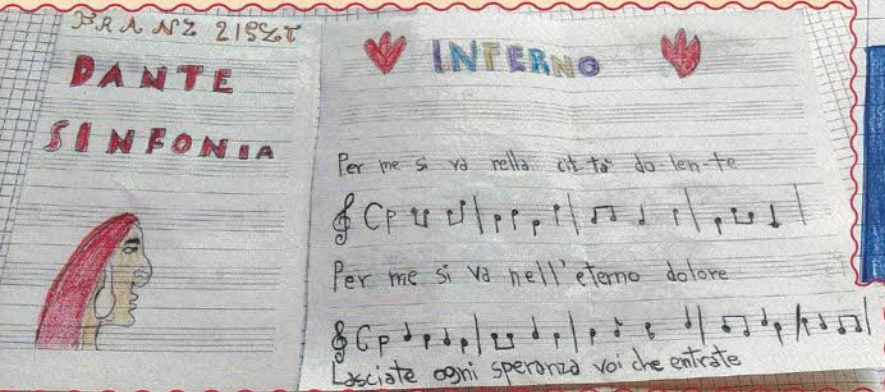 FRANZ LISZT
DANTE
SINFONIA
INFERNO
Per me si va nella cit tà do-len-te
C
Per me si va nell'eterno dolore
C
Lasciate ogni speranza voi che entrate